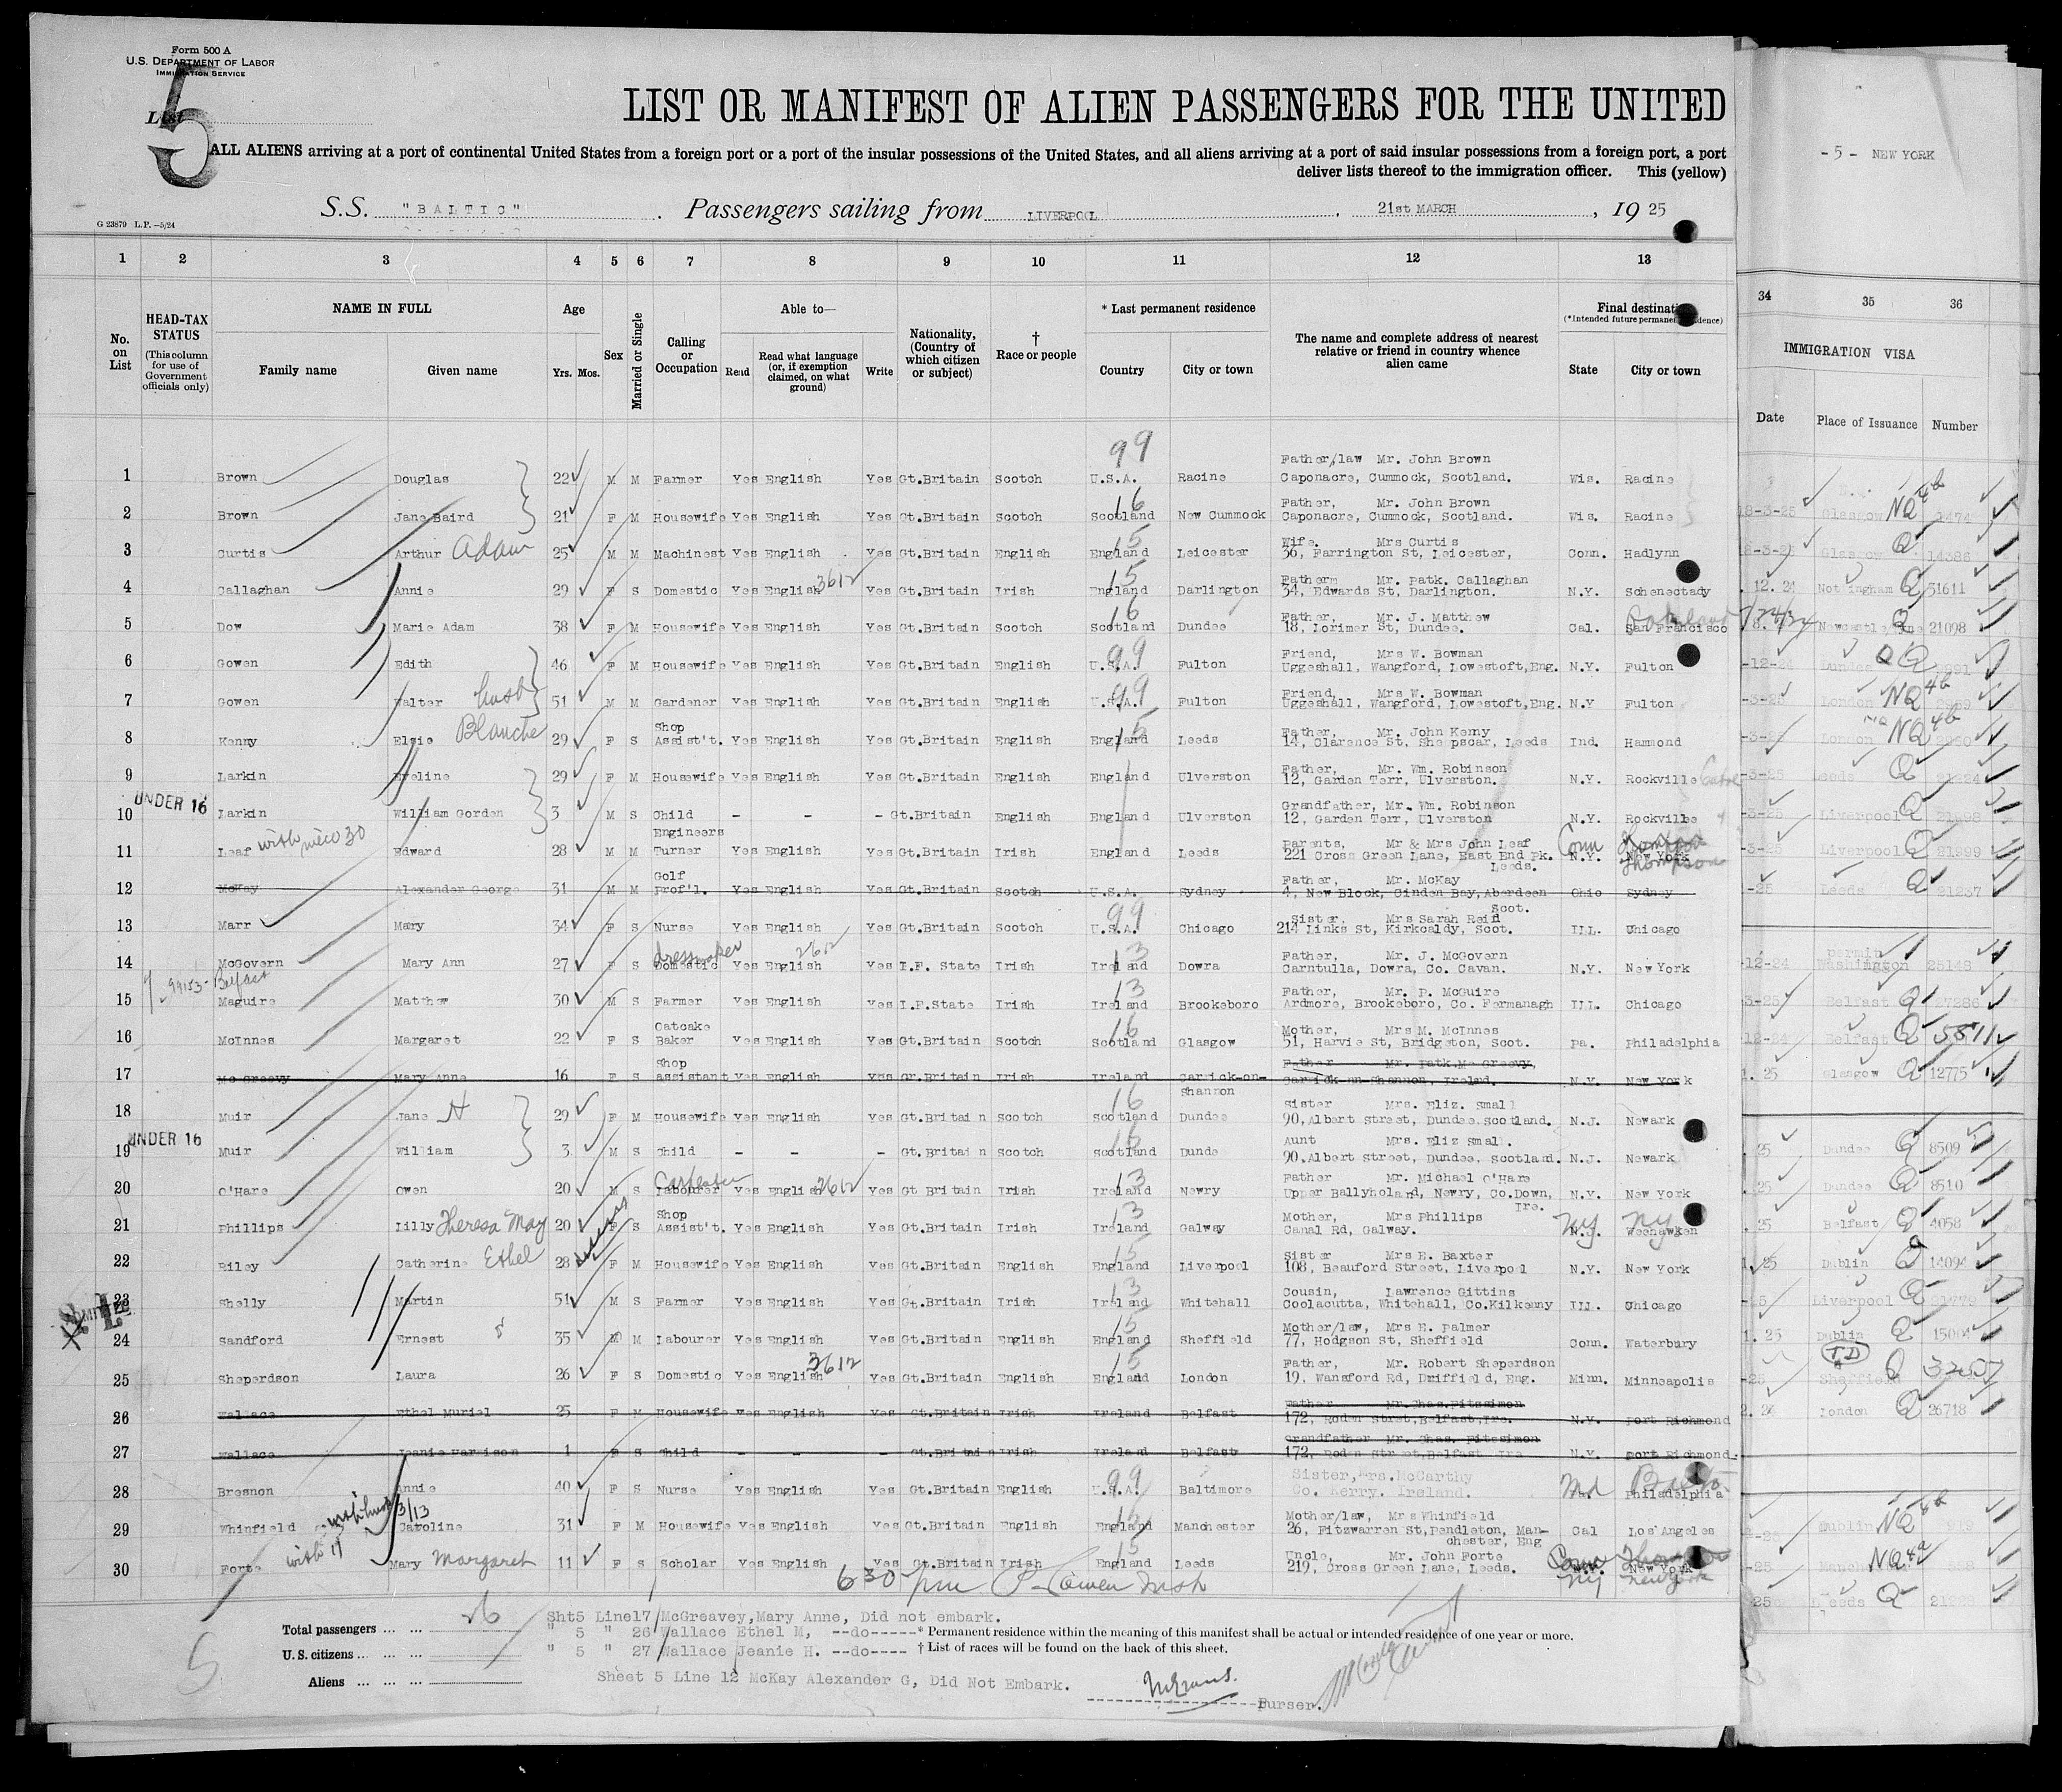 Form 500 A
U.S. DEPARTMENT OF LABOR
IMMIGRATION SERVICE
List 5
LIST OR MANIFEST OF ALIEN PASSENGERS FOR THE UNITED
ALL ALIENS arriving at a port of continental United States from a foreign port or a port of the insular possessions of the United States, and all aliens arriving at a port of said insular possessions from a foreign port, a port
deliver lists thereof to the immigration officer. This (yellow)
- 5 - NEW YORK
S.S. "BALTIC" Passengers sailing from LIVERPOOL, 21st MARCH, 19 25
G 23879 L.P.—5/24
1 2 3 4 5 6 7 8 9 10 11 12 13 34 35 36
No. on List
HEAD-TAX STATUS (This column for use of Government officials only)
NAME IN FULL Family name Given name
Age Yrs. Mos.
Sex
Married or Single
Calling or Occupation
Able to— Read Read what language (or, if exemption claimed, on what ground) Write
Nationality, (Country of which citizen or subject)
† Race or people
* Last permanent residence Country City or town
The name and complete address of nearest relative or friend in country whence alien came
Final destination (*Intended future permanent residence) State City or town
IMMIGRATION VISA Date Place of Issuance Number
1 Brown Douglas 22 M M Farmer Yes English Yes Gt.Britain Scotch 99 U.S.A. Racine Father/law Mr. John Brown Caponacre, Cummock, Scotland. Wis. Racine
2 Brown Jane Baird 21 F M Housewife Yes English Yes Gt.Britain Scotch 16 Scotland New Cummock Father, Mr. John Brown Caponacre, Cummock, Scotland. Wis. Racine 18-3-25 Glasgow NQ 4b 1474
3 Curtis Arthur Adam 25 M M Machinest Yes English Yes Gt.Britain English 15 England Leicester Wife. Mrs Curtis 36, Farrington St, Leicester, Conn. Hadlynn 8-3-25 Glasgow Q 14386
4 Callaghan Annie 29 F S Domestic Yes English 3612 Yes Gt.Britain Irish 15 England Darlington Fatherm Mr. Patk. Callaghan 34, Edwards St, Darlington. N.Y. Schenectady . 12. 24 Nottingham Q 31611
5 Dow Marie Adam 38 F M Housewife Yes English Yes Gt.Britain Scotch 16 Scotland Dundee Father, Mr. J. Matthew 18, Lorimer St, Dundee. Cal. San Francisco Newcastle Q 21098
6 Gowen Edith 46 F M Housewife Yes English Yes Gt.Britain English 99 U.S.A. Fulton Friend, Mrs W. Bowman Uggeshall, Wangford, Lowestoft,Eng. N.Y. Fulton -12-24 Dundee Q
7 Gowen Walter husb 51 M M Gardener Yes English Yes Gt.Britain English 99 U.S.A. Fulton Friend, Mrs W. Bowman Uggeshall, Wangford, Lowestoft,Eng. N.Y Fulton -3-25 London NQ 4b
8 Kenny Elsie Blanche 29 F S Shop Assist't. Yes English Yes Gt.Britain English 15 England Leeds Father, Mr. John Kenny 14, Clarence St, Shepscar, Leeds Ind. Hammond -3-25 London NQ 4b
9 Larkin Eveline 29 F M Housewife Yes English Yes Gt.Britain English England Ulverston Father, Mr. Wm. Robinson 12, Garden Terr, Ulverston. N.Y. Rockville -3-25 Leeds Q 21224
UNDER 16
10 Larkin William Gorden 3 M S Child - - - Gt.Britain English England Ulverston Grandfather, Mr. Wm. Robinson 12, Garden Terr, Ulverston N.Y. Rockville -3-25 Liverpool Q 21898
11 Leaf with niece 30 Edward 28 M M Engineers Turner Yes English Yes Gt.Britain Irish England Leeds Parents, Mr & Mrs John Leaf 221 Cross Green Lane, East End Pk. Leeds. Conn N.Y. New York Thompson -3-25 Liverpool Q 21899
12 McKay Alexander George 31 M M Golf Prof'l. Yes English Yes Gt.Britain Scotch U.S.A. Sydney Father, Mr. McKay 4, New Block, Cinden Bay, Aberdeen Scot. Ohio Sydney -25 Leeds Q 21237
13 Marr Mary 34 F S Nurse Yes English Yes Gt.Britain Scotch 99 U.S.A. Chicago Sister, Mrs Sarah Reid 214 Links St, Kirkcaldy, Scot. ILL. Chicago
14 McGovern Mary Ann 27 F S dressmaker Domestic Yes English 2612 Yes I.F. State Irish 13 Ireland Dowra Father, Mr. J. McGovern Carntulla, Dowra, Co. Cavan. N.Y. New York -12-24 permit Washington 25148
99153 - Belfast
15 Maguire Matthew 30 M S Farmer Yes English Yes I.F.State Irish 13 Ireland Brookeboro Father, Mr. P. McGuire Ardmore, Brookeboro, Co. Fermanagh ILL. Chicago 3-25 Belfast Q 27286
16 McInnes Margaret 22 F S Oatcake Baker Yes English Yes Gt.Britain Scotch 16 Scotland Glasgow Mother, Mrs M. McInnes 51, Harvie St, Bridgeton, Scot. Pa. Philadelphia 12-24 Belfast Q 5811
17 Mc Greevy Mary Anne 16 F S Shop assistant Yes English Yes Gr.Britain Irish Ireland Carrick-on-Shannon Father Mr. Patk.Mc Greevy, Carrick-on-Shannon, Ireland. N.Y. New York 1. 25 Glasgow Q 12775
18 Muir Jane H 29 F M Housewife Yes English Yes Gt.Britain Scotch 16 Scotland Dundee Sister Mrs. Eliz. Small 90,Albert Street, Dundee.Scotland. N.J. Newark
UNDER 16
19 Muir William 3. M S Child - - - Gt.Britain Scotch 16 Scotland Dunde Aunt Mrs. Eliz Small. 90.Albert Street, Dundee, Scotland. N.J. Newark 25 Dundee Q 8509
20 O'Hare Owen 20 M S Carpenter Labourer Yes English 2612 Yes Gt Britain Irish 13 Ireland Newry Father Mr. Michael O'Hare Upper Ballyholand, Newry, Co.Down, Ire. N.Y. New York . 25 Dundee Q 8510
21 Phillips Lilly Theresa May 20 F S Shop Assist't. Yes English Yes Gt.Britain Irish 13 Ireland Galway Mother, Mrs Phillips Canal Rd, Galway. NY N.J. NY Weehawken . 25 Belfast Q 4058
22 Riley Catherine Ethel 28 F M Housewife Yes English Yes Gt.Britain English 15 England Liverpool Sister Mrs E. Baxter 108, Beauford Street, Liverpool N.Y. New York 1. 25 Dublin Q 14094
23 Shelly Martin 51 M S Farmer Yes English Yes Gt.Britain Irish 13 Ireland Whitehall Cousin, Lawrence Gittins Coolacutta, Whitehall, Co.Kilkenny ILL. Chicago -25 Liverpool Q
24 Sandford Ernest 35 M M Labourer Yes English Yes Gt.Britain English 15 England Sheffield Mother/law, Mrs E. Palmer 77, Hodgson St, Sheffield Conn. Waterbury 1. 25 Dublin Q 15004
25 Sheperdson Laura 26 F S Domestic Yes English 3612 Yes Gt.Britain English 15 England London Father, Mr. Robert Sheperdson 19, Wansford Rd, Driffield, Eng. Minn. Minneapolis -25 T.D Sheffield Q
26 Wallace Ethel Muriel 25 F M Housewife Yes English Yes Gt.Britain Irish Ireland Belfast Father Mr.Chas.Fitzsimon 172, Roden Street,Belfast,Ire. N.Y. Port Richmond 2. 26 London Q 26718
27 Wallace Jeanie Harrison 1 F S Child - - - Gt.Britain Irish Ireland Belfast Grandfather Mr. Chas. Fitzsimon 172, Roden Street,Belfast Ire N.Y. Port Richmond.
28 Bresnon Annie 40 F S Nurse Yes English Yes Gt.Britain English 99 U.S.A. Baltimore Sister,Mrs.McCarthy Co. Kerry. Ireland. Md Philadelphia
29 Whinfield with husb 3/13 Caroline 31 F M Housewife Yes English Yes Gt.Britain English 15 England Manchester Mother/law, Mrs Whinfield 26, Fitzwarren St,Pendleton, Manchester, Eng Cal Los Angeles Dublin NQ 4b
30 Forte with 11 Mary Margaret 11 F S Scholar Yes English Yes Gt.Britain Irish 15 England Leeds Uncle, Mr. John Forte 219, Cross Green Lane, Leeds. Conn NY New York New York -25 NQ 4a
25 Leeds Q
630 pm
Total passengers ... ... 26
U. S. citizens ... ...
Aliens ... ... ...
5
Sht5 Line17 McGreavey,Mary Anne, Did not embark.
" 5 " 26 Wallace Ethel M, --do-----
" 5 " 27 Wallace Jeanie H. --do----
Sheet 5 Line 12 McKay Alexander G, Did Not Embark.
* Permanent residence within the meaning of this manifest shall be actual or intended residence of one year or more.
† List of races will be found on the back of this sheet.
Purser.